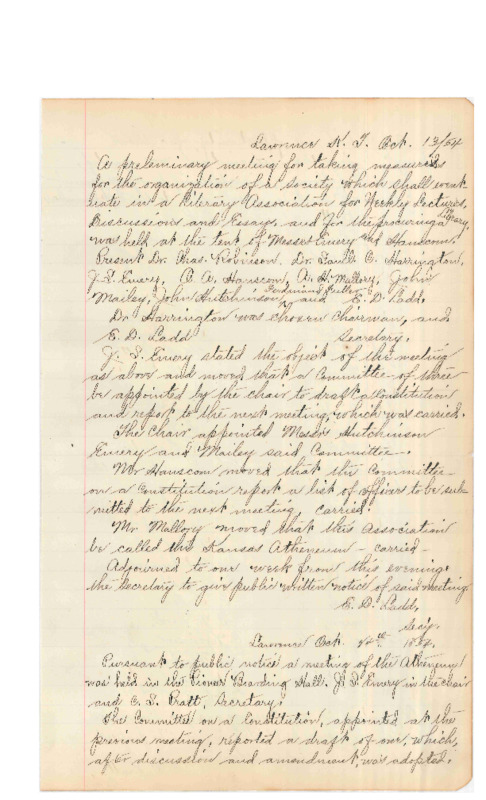 Lawrence K. T. Oct. 13/54
A preleminary meeting for taking measures
for the organization of a society which shall event-
uate in a Literary Association for Weekly Lectures,
Discussions and Essays, and for the procuring a Library,
was held at the tent of Messrs Emery and Hanscom.
Present Dr. Chas. Robinson, Dr. C. Harrington,
J. S. Emery, O. A. Hanscom, A. H. Mallory, John
Mailey, John Hutchinson, Ferdinand Fuller and E. D. Ladd.
Dr. Harrington was chosen Chairman, and
E. D. Ladd Secretary.
J. S. Emery stated the object of the meeting
as above and moved that a Committee of three
be appointed by the chair to draft a Constitution
and report to the next meeting, which was carried.
The Chair appointed Messrs Hutchinson
Emery and Mailey said Committee.
Mr Hanscom moved that the Committee
on a Constitution report a list of officers to be sub-
mitted to the next meeting, carried.
Mr. Mallory moved that this Association
be called the Kansas Atheneum - carried -
Adjourned to one week from this evening.
the Secretary to give public written notice of said meeting
E. D. Ladd,
Secy.
Lawrence Oct. 1854.
Pursuant to public notice a meeting of the Atheneum
was held in the Pioneer Boarding Hall. J. S. Emery in the chair
and C. S. Pratt, Secretary.
The Committee on a Constitution, appointed at the
previous meeting, reported a draft of one, which,
after discussion and amendment, was adopted.